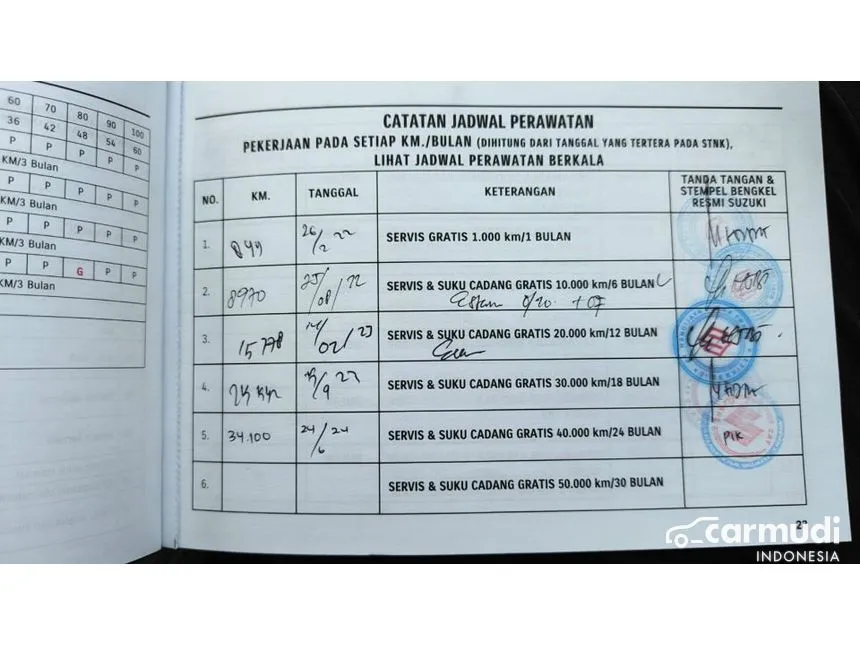 60 70 80 90 100
36 42 48 54 60
P P P P P
KM/3 Bulan
P P P P P
KM/3 Bulan
P P P P P
KM/3 Bulan
P P G P P
KM/3 Bulan
CATATAN JADWAL PERAWATAN
PEKERJAAN PADA SETIAP KM./BULAN (DIHITUNG DARI TANGGAL YANG TERTERA PADA STNK),
LIHAT JADWAL PERAWATAN BERKALA
NO. KM. TANGGAL KETERANGAN TANDA TANGAN & STEMPEL BENGKEL RESMI SUZUKI
1. 26/2 22 SERVIS GRATIS 1.000 km/1 BULAN
2. 8970 25/08/22 SERVIS & SUKU CADANG GRATIS 10.000 km/6 BULAN
3. 15778 02/23 SERVIS & SUKU CADANG GRATIS 20.000 km/12 BULAN
4. SERVIS & SUKU CADANG GRATIS 30.000 km/18 BULAN
5. 34.100 24/6 24 SERVIS & SUKU CADANG GRATIS 40.000 km/24 BULAN PIK
6. SERVIS & SUKU CADANG GRATIS 50.000 km/30 BULAN
carmudi
INDONESIA